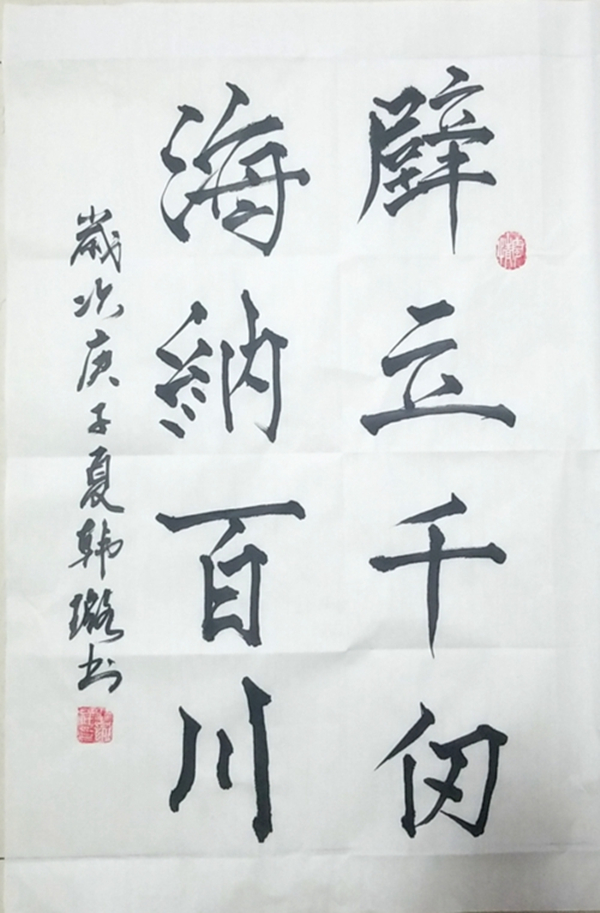 壁立千仞
海納百川
歲次庚子夏韩璐书